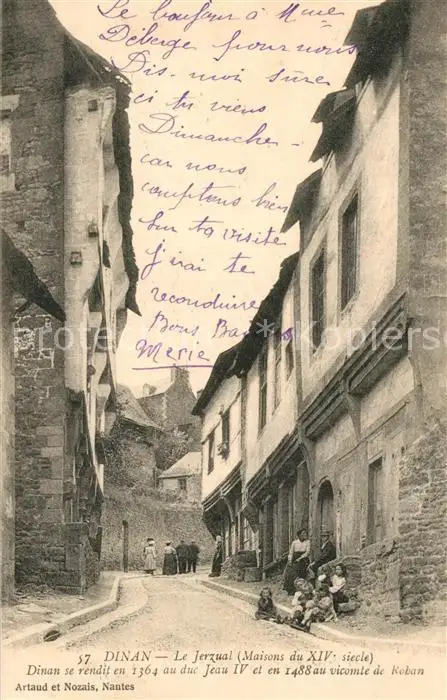 Le bonjour à Mme
Déberge pour nous
Dis-moi sœur
si tu viens
Dimanche
car nous
comptons bien
sur ta visite
j'irai te
reconduire
Bons Bai
Marie
57 DINAN — Le Jerzual (Maisons du XIVe siècle)
Dinan se rendit en 1364 au duc Jeau IV et en 1488 au vicomte de Rohan
Artaud et Nozais, Nantes